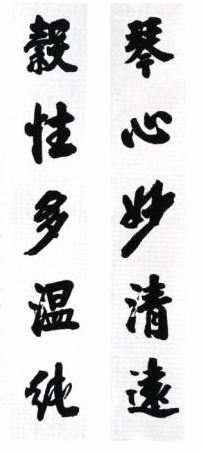 琴心妙清遠
穀性多温纯